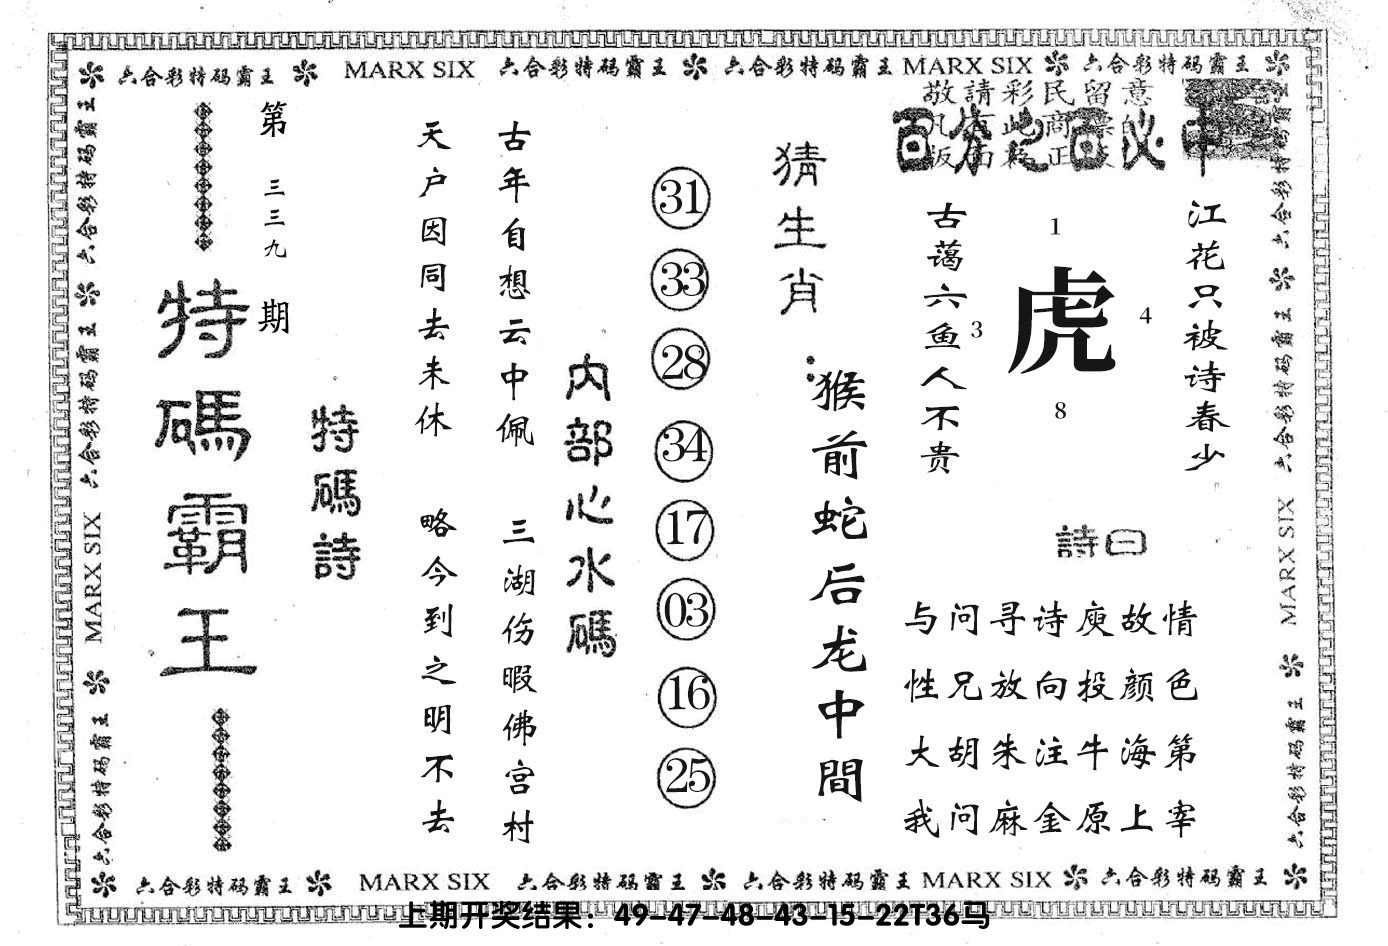 六合彩特码霸王 MARX SIX 六合彩特码霸王 六合彩特码霸王 MARX SIX 六合彩特码霸王
敬請彩民留意
江花只被诗春少
虎
1
4
3
8
古蔼六鱼人不贵
詩曰
与问寻诗庾故情
性兄放向投颜色
大胡朱注牛海第
我问麻金原上宰
猜生肖:
猴前蛇后龙中間
31
33
28
34
17
03
16
25
内部心水碼
古年自想云中佩 三湖伤暇佛宫村
天户因同去未休 略今到之明不去
特碼詩
第三三九期
特碼霸王
六合彩特码霸王 六合彩特码霸王 MARX SIX 六合彩特码霸王
六合彩特码霸王 六合彩特码霸王 MARX SIX 六合彩特码霸王
六合彩特码霸王 MARX SIX 六合彩特码霸王 六合彩特码霸王 MARX SIX 六合彩特码霸王
上期开奖结果：49-47-48-43-15-22T36马